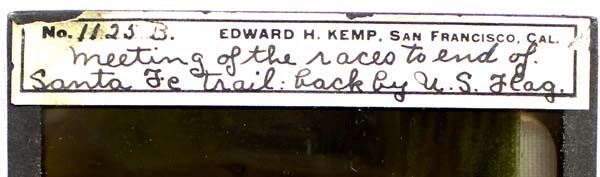 No. 1125 B. EDWARD H. KEMP, SAN FRANCISCO, CAL.
Meeting of the races to end of.
Santa Fe trail: back by U.S. Flag.